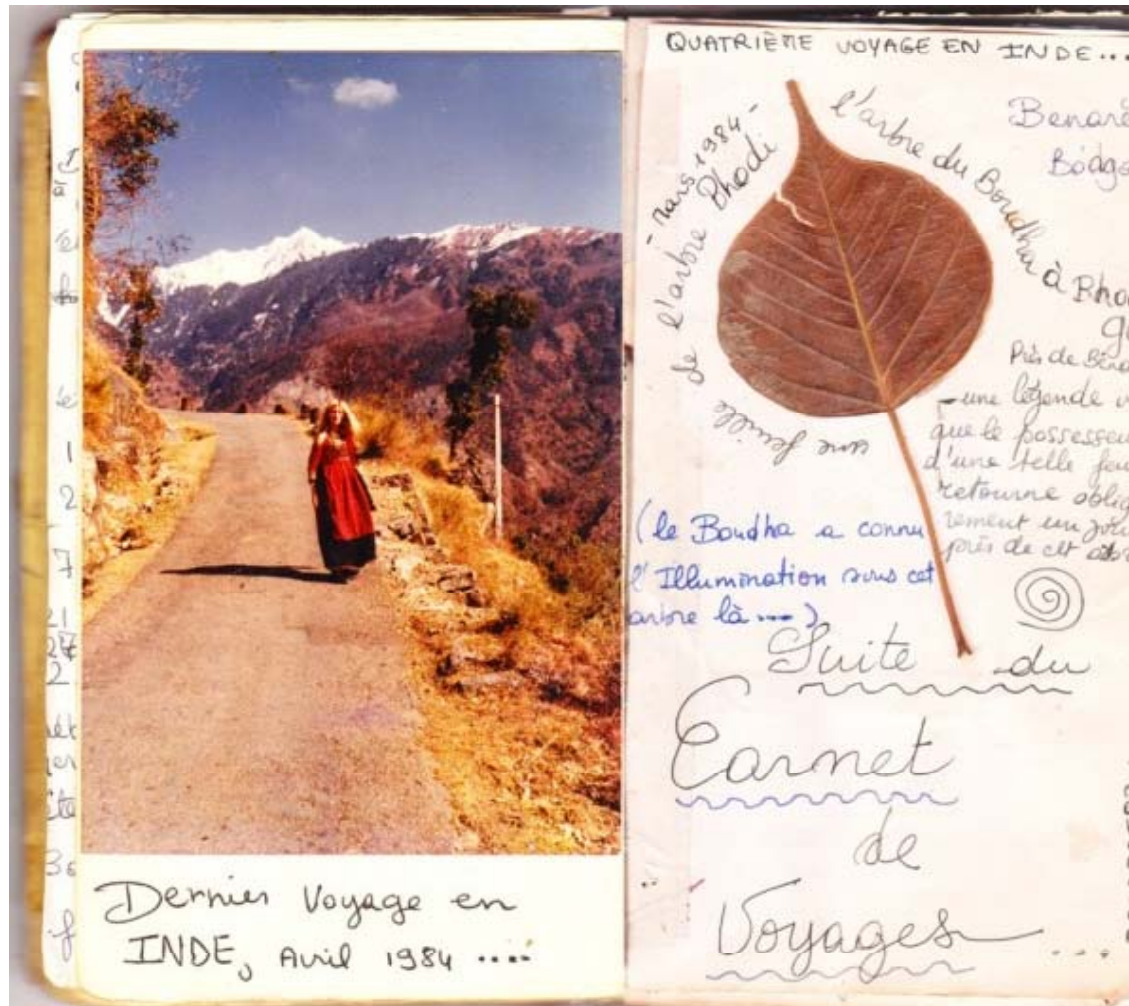 Dernier Voyage en
INDE, Avril 1984 .....
QUATRIÈME VOYAGE EN INDE...
Benarè
Bódg
une feuille de l'arbre Bhodi
- mars 1984 -
l'arbre du Boudha à Bho
g
Près de Béna
- une légende v
que le possesseu
d'une telle feu
retourne oblig
rement un jou
près de cet
(le Boudha a connu
l'Illumination sous cet
arbre là ---)
Suite du
Carnet
de
Voyages ...